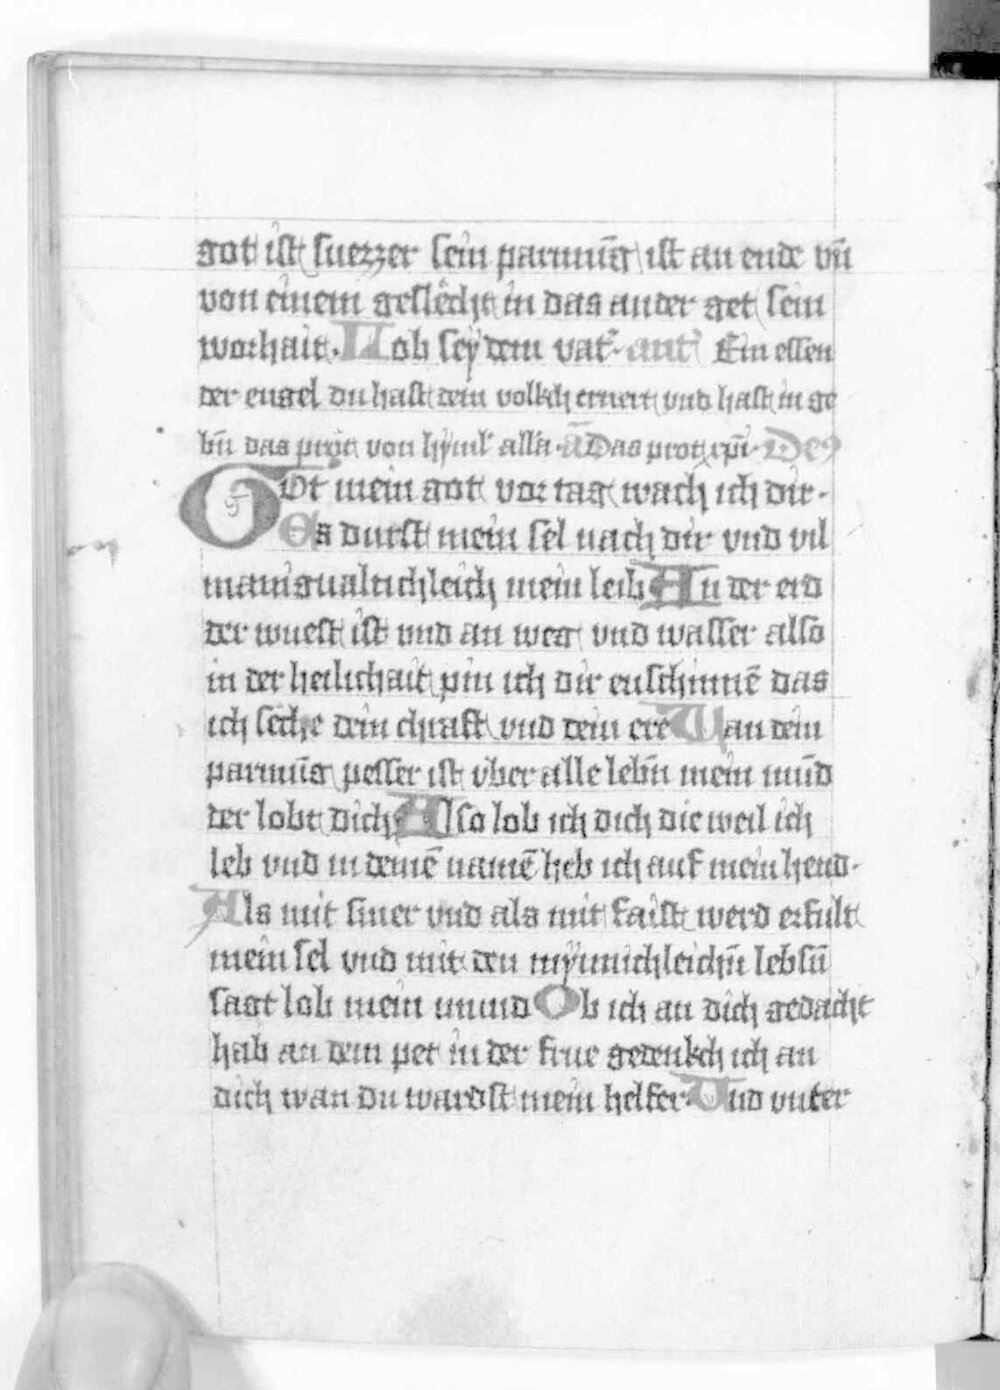 got ist suezzer sein parmūg ist an ende vn̄
von einem geslecht in das ander get sein
worhait. Lob sey dem vat̕. ant̕ Ein essen
der engel du hast dein volkch ernert vnd hast in ge
bn̄ das prōt von hyml̕ all̕a. ā Das prot xp̄i. De9
Got mein got vor tag wach ich dir.
Es durst mein sel nach dir vnd vil
manigualtichleich mein leib An der erd
der wuest ist vnd an weg vnd wasser also
in der heilichait pin ich dir erschinnē das
ich seche dein chraft vnd dein ere Wan dein
parmūg pesser ist vber alle lebn̄ mein mūd
der lobt dich Also lob ich dich die weil ich
leb vnd in deinē namē heb ich auf mein hend.
Als mit smer vnd als mit faist werd erfult
mein sel vnd mit den mynnichleichn̄ lebsn̄
sagt lob mein mund Ob ich an dich gedacht
hab an dem pet in der frue gedenkch ich an
dich wan du wardst mein helfer. Vnd vnter